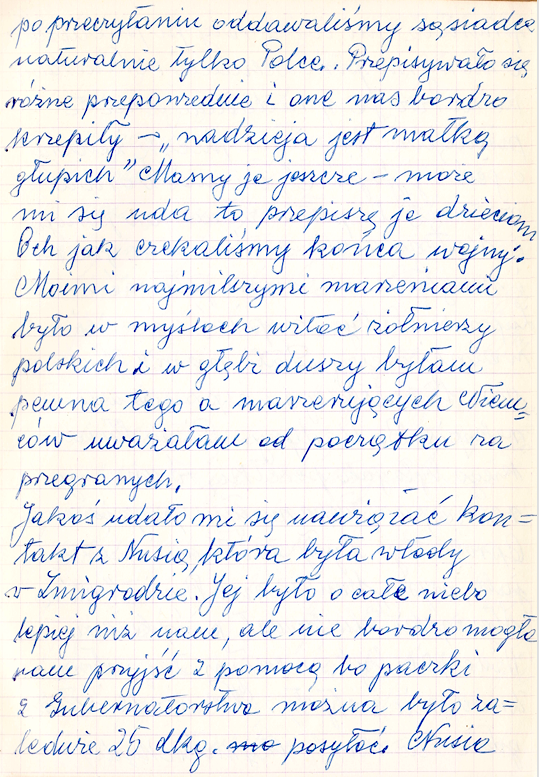 po przeczytaniu oddawaliśmy sąsiadce
naturalnie tylko Polce. Przepisywało się
różne przepowiednie i one nas bardzo
krzepiły – „nadzieja jest matką
głupich” Mamy je jeszcze – może
mi się uda to przepiszę je dzieciom
Och jak czekaliśmy końca wojny.
Moimi najmilszymi marzeniami
było w myślach witać żołnierzy
polskich i w głębi duszy byłam
pewna tego a maszerujących Niem=
ców uważałam od początku za
przegranych.
Jakoś udało mi się nawiązać kon=
takt z Nusią, która była wtedy
w Żmigrodzie. Jej było o całe niebo
lepiej niż nam, ale nie bardzo mogła
nam przyjść z pomocą bo paczki
z Gubernatorstwa można było za=
ledwie 25 dkg. posyłać. Nusia